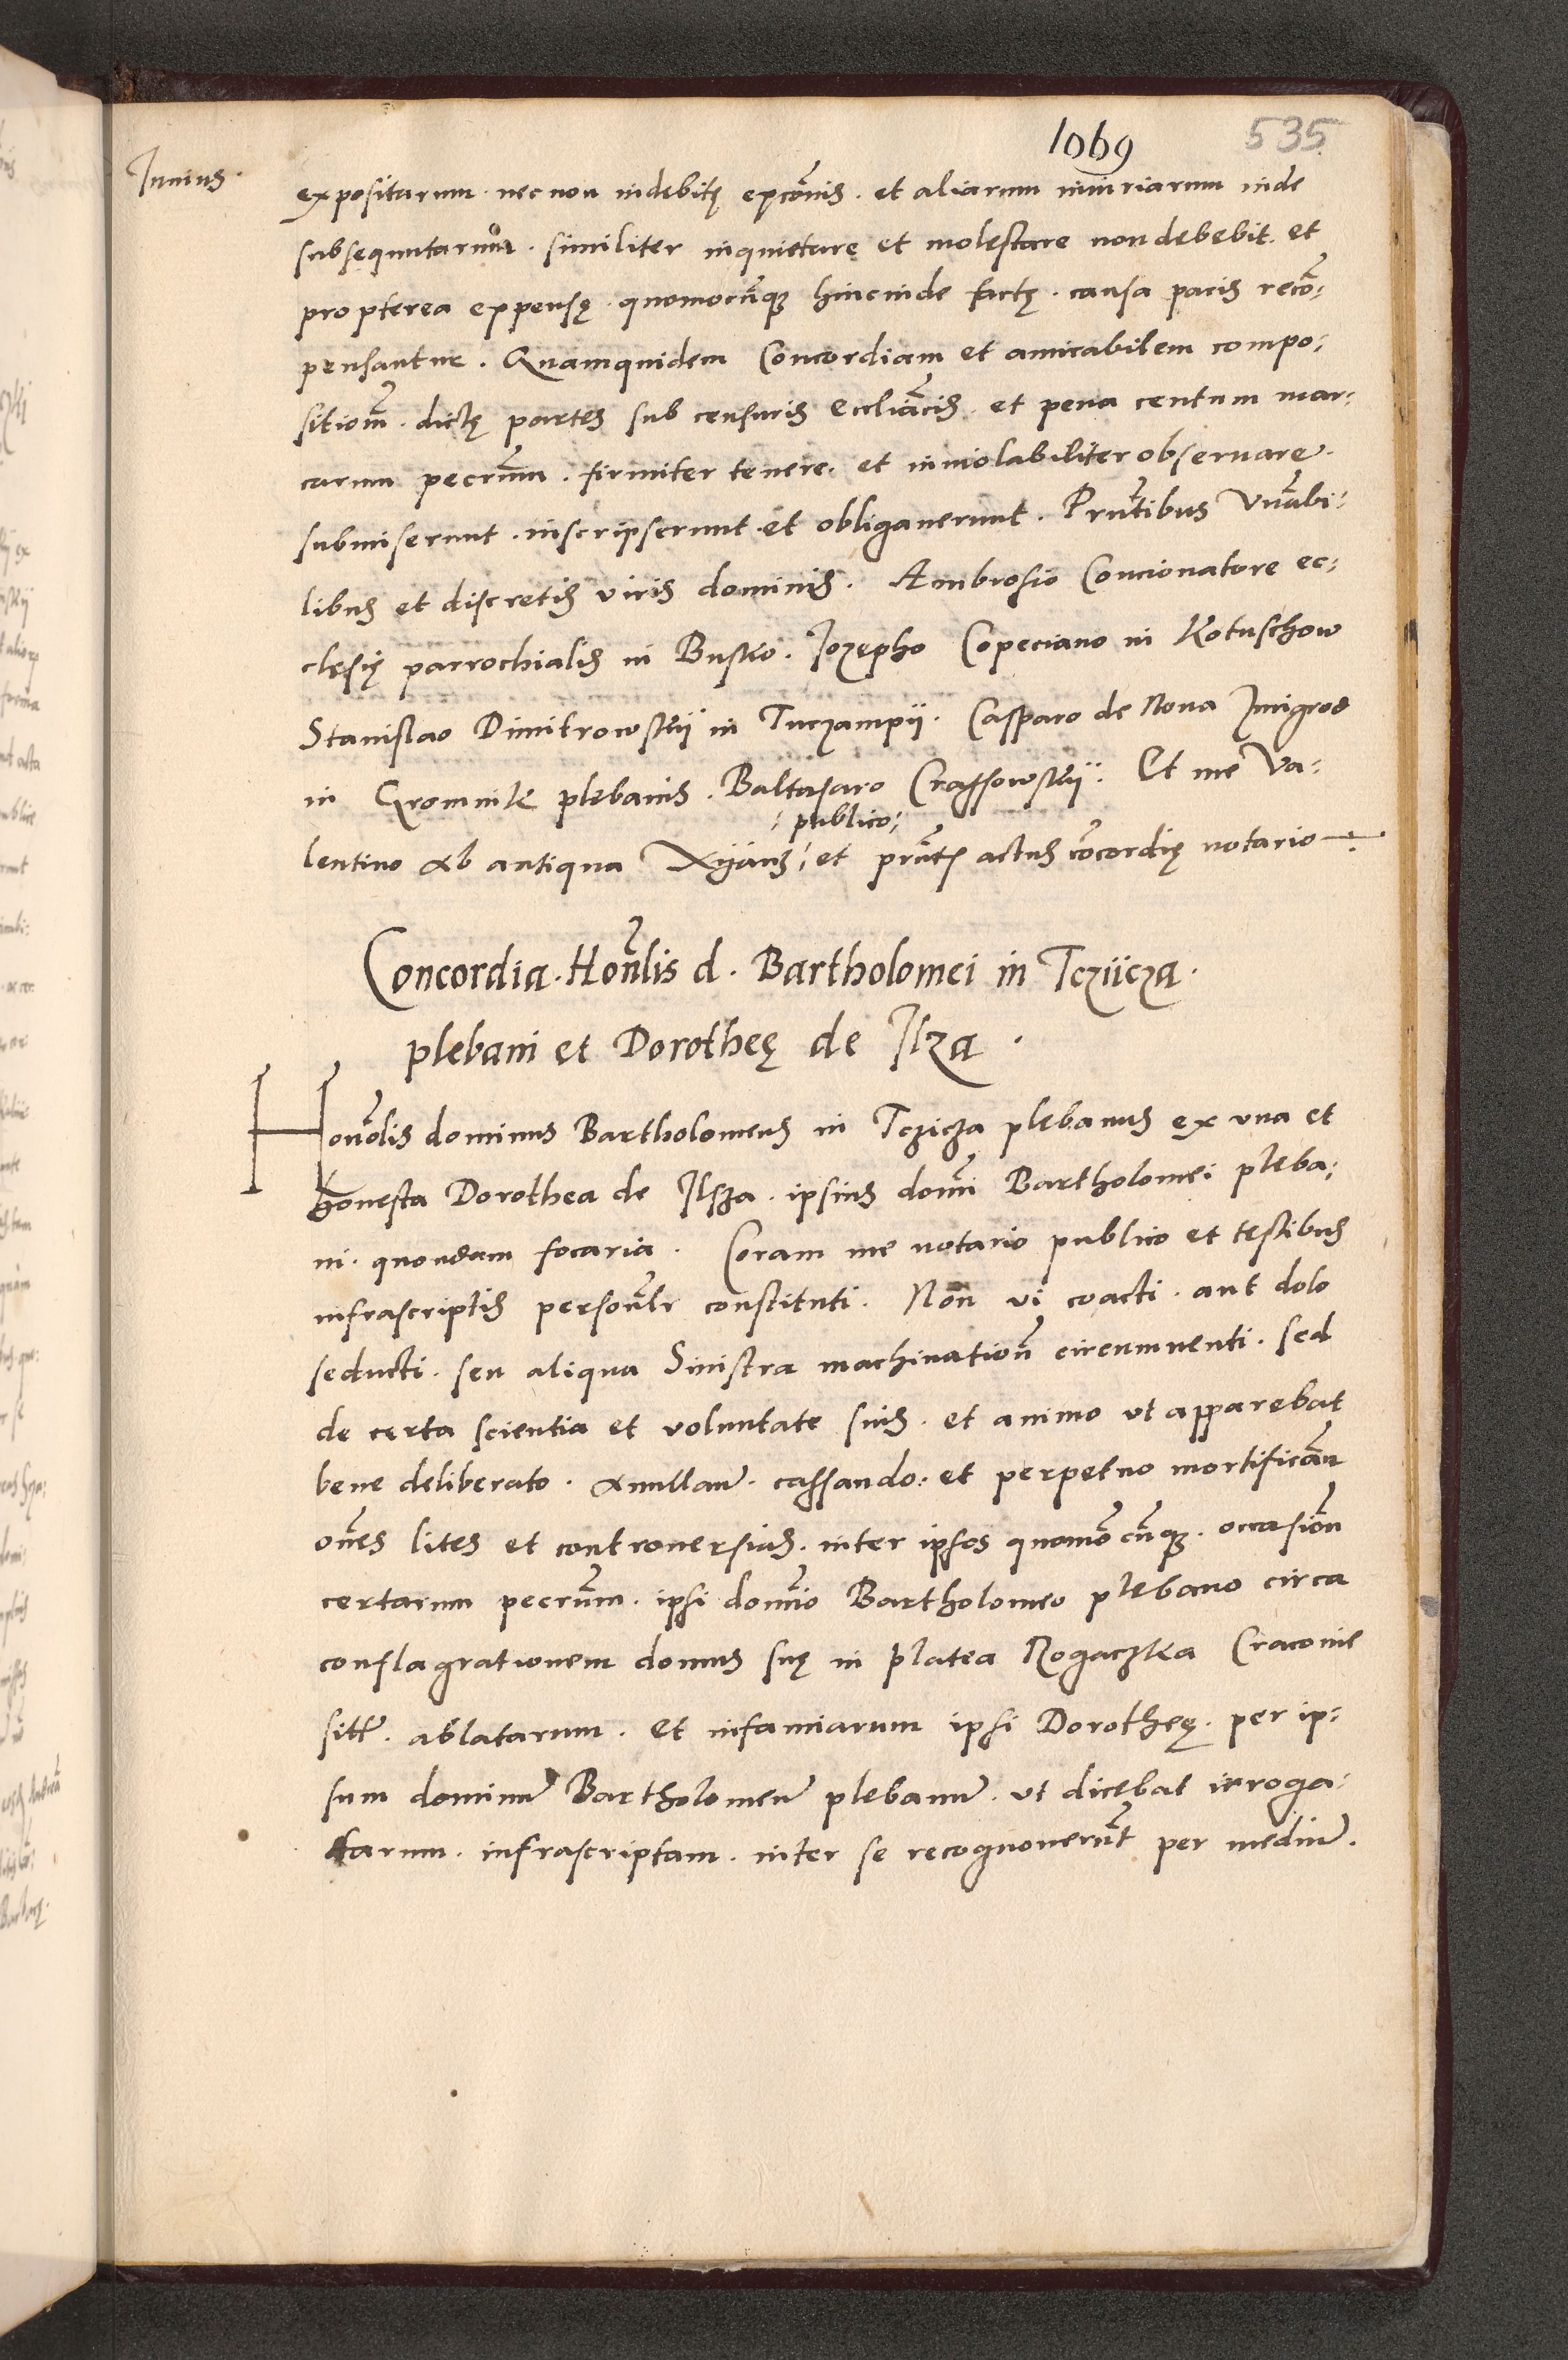 1069 535
Junius.
expositarum. nec non indebitę exc̃onis. et aliarum iniuriarum inde
subsequutarum. similiter inquietare et molestare non debebit. et
propterea expensę. quomocũq3 hincinde factę. causa pacis recõ:
pensantur. Quamquidem Concordiam et amicabilem compo:
sitiom̃. dictę partes sub censuris Eccl̃iacis et pena centum mar:
carum pecr̃um. firmiter tenere. et inuiolabiliter obseruare.
submiserunt. inscripserunt. et obligauerunt. Pr̃ntibus Vñabi:
libus et discretis viris dominis. Ambrosio Concionatore ec:
clęsię parrochialis in Busko. Jozepho Copeciano in Kotuschow
Stanislao Dimitrowskÿ in Tuczampÿ. Casparo de Noua Zmigrod
in Gromnik plebanis. Baltasaro Crassowskÿ. Et me Va:
: publico :
lentino ab antiqua Xÿans : et pr̃ntis actus cõcordię notario
Concordia. Hon̄lis d. Bartholomei in Tcziicza.
plebani et Dorotheę de Ilza.
Honõlis dominus Bartholomeus in Tczicza plebanus ex vna et
honesta Dorothea de Ilsza. ipsius domĩ Bartholomei pleba:
ni. quondam focaria. Coram me notario publico et testibus
infrascriptis persoñlr constituti. Non vi coacti. aut dolo
seducti. seu aliqua Sinistra machinatioñ circumuenti. sed
de certa scientia et voluntate suis. et animo ut apparebat
bene deliberato. cassando: et perpetuo mortificãn
oẽs lites et controuersias. inter ipsos quomõcũq3. occasioñ
certarum pecr̃um. ipsi domĩo Bartholomeo plebano circa
conflagrationem domus suę in platea Rogaczka Cracouie
sitę. ablatarum. et infamiarum ipsi Dorotheę. per ip:
sum dominũ Bartholomeũ plebanũ. ut dicebat irroga:
tarum. infrascriptam. inter se recognouerũt per mediũ.